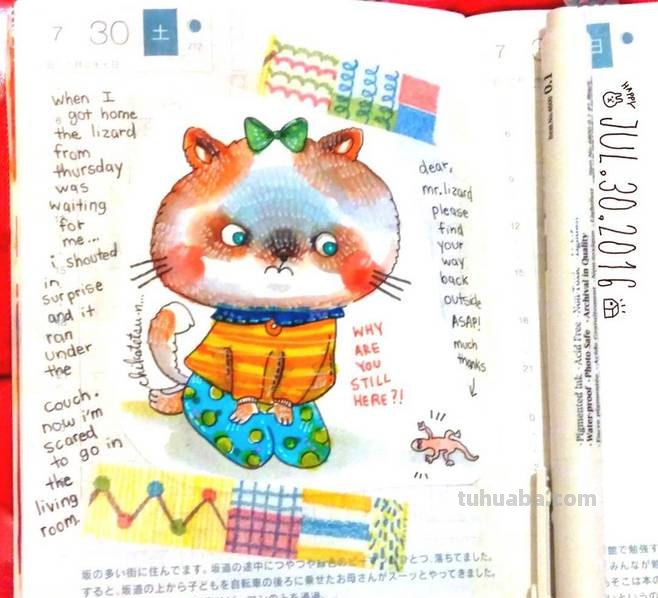 7 30 土
212
when I
got home
the lizard
from
thursday
was
waiting
for
me...
i shouted
in
surprise
and it
ran
under
the
couch.
now i'm
scared
to go in
the
living
room.
dear,
mr.lizard
please
find
your
way
back
outside
ASAP!
much
thanks
WHY
ARE
YOU
STILL
HERE?!
chibatetsun...
tuhuaba.com
坂の多い街に住んでます。坂道の途中につやつや
つ、落ちてました。
すると、坂道の上から子どもを自転車の後ろに乗せたお母さんがスーッとやってきました。
7
日
9
12
15
18
21
0
Item No. 0.1
Pigmented Ink · Acid Free
Water-proof · Photo Safe · Archival in Quality
HAPPY
JUL.30.2016